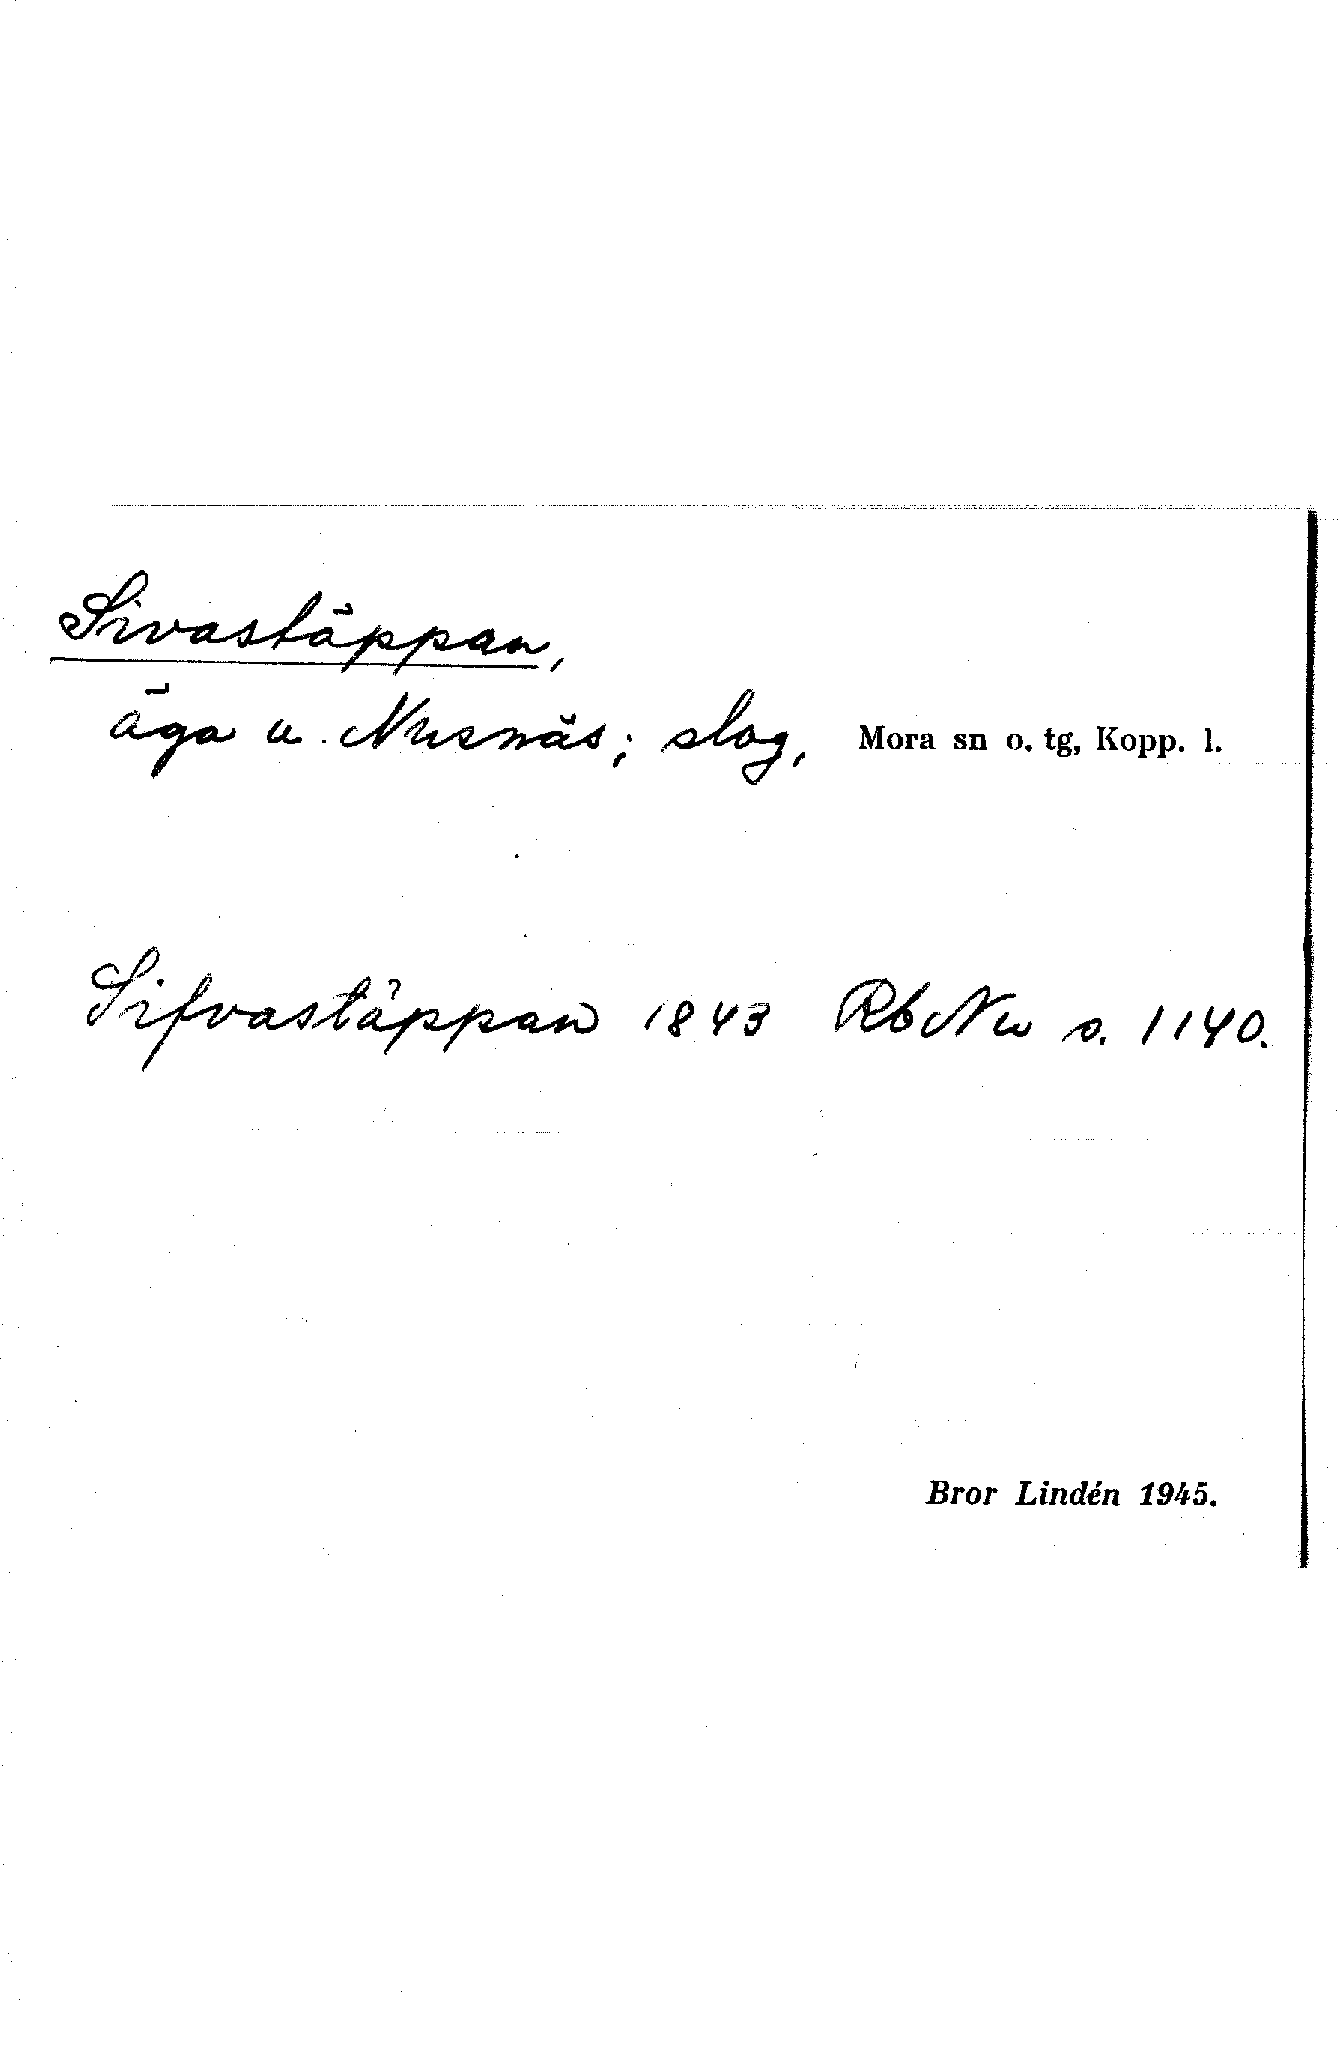 Sivastäppan,
äga u. Nusnäs; slog, Mora sn o. tg, Kopp. l.
Sifvastäppan 1843 Rb Nu s. 1140.
Bror Lindén 1945.